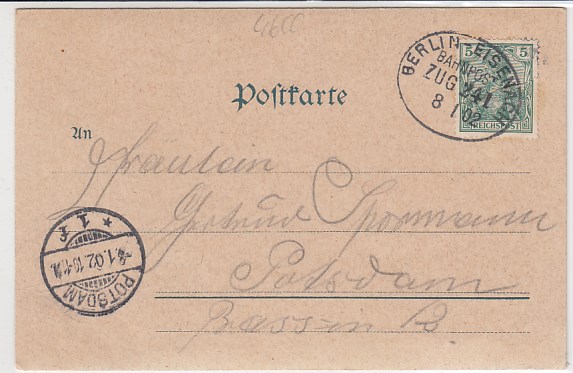 4600
5 5
REICHSPOST
BERLIN-EISENACH
BAHNPOST
ZUG 241
8 1 02
Postkarte
An
Fräulein
Gertrud Spormann
Potsdam
* 1. F
1.02. 10-11
POTSDAM